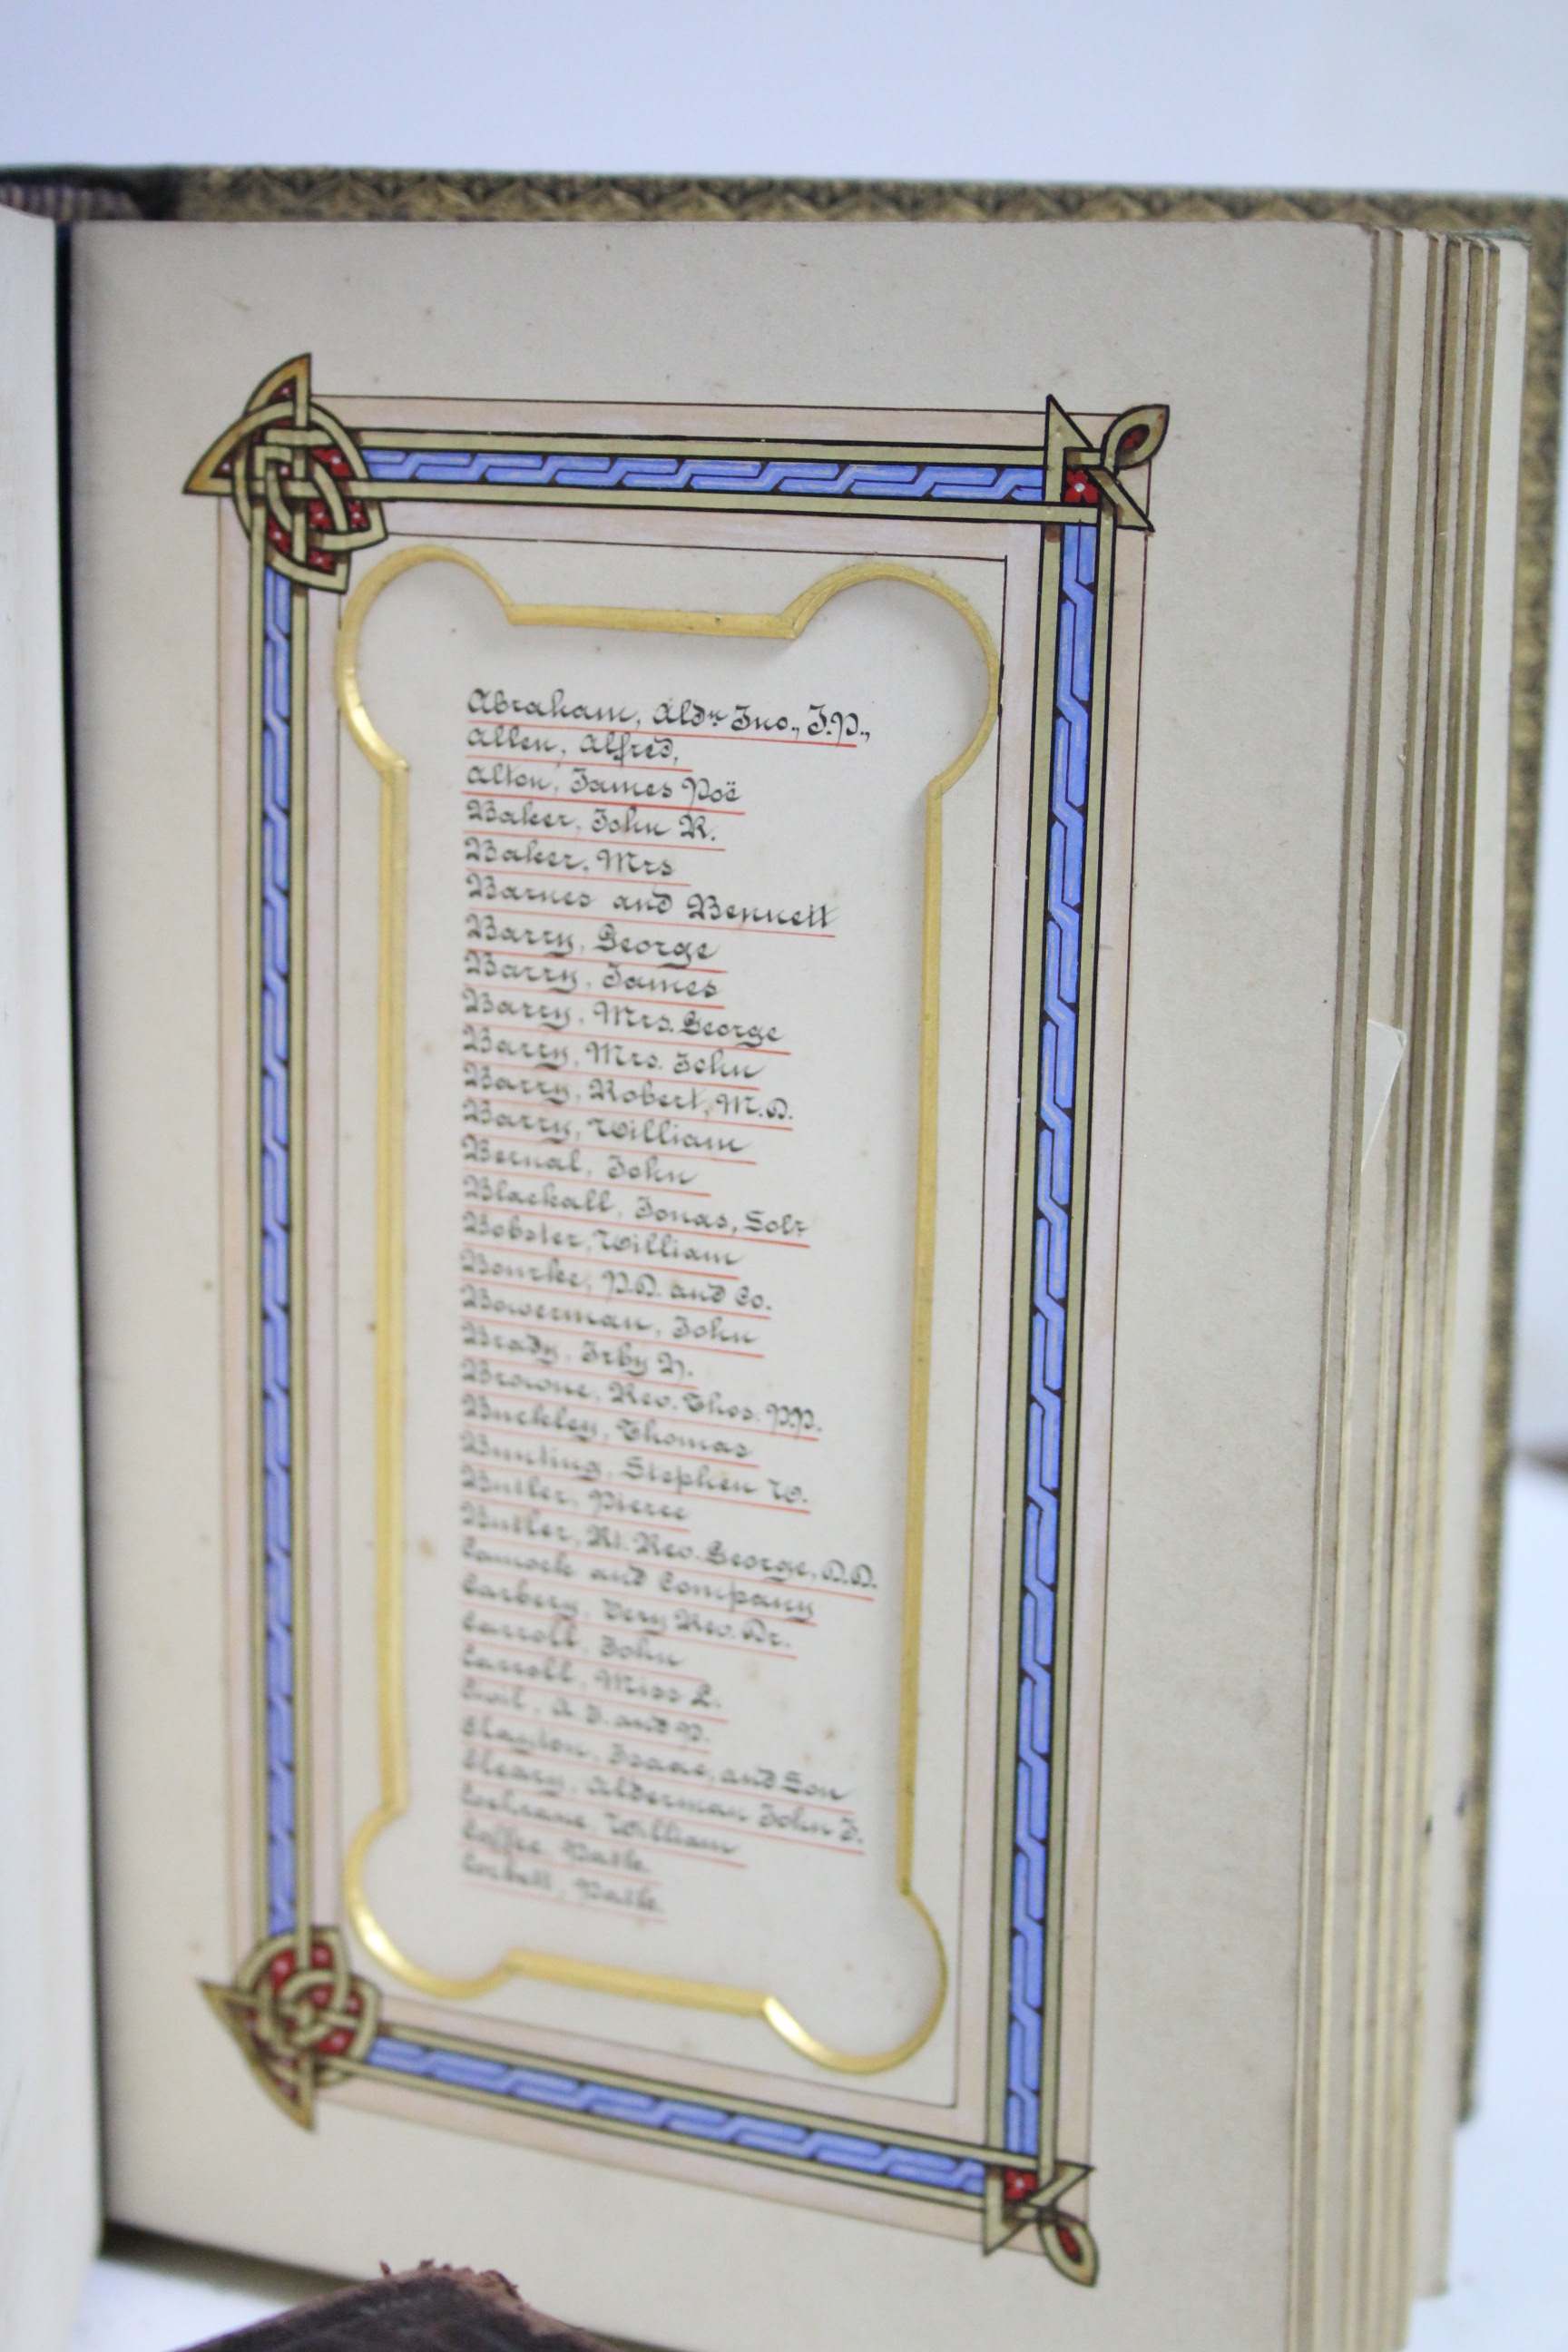 Abraham, Aldr. Jno., J.P.,
Allen, Alfred,
Alton, James Poë
Baker, John R.
Baker, Mrs
Barnes and Bennett
Barry, George
Barry, James
Barry, Mrs. George
Barry, Mrs. John
Barry, Robert, M.D.
Barry, William
Bernal, John
Blackall, Jonas, Solr
Bobster, William
Bourke, P.D. and Co.
Bowerman, John
Brady, Irby N.
Browne, Rev. Thos. P.P.
Buckley, Thomas
Bunting, Stephen W.
Butler, Pierce
Butler, Rt. Rev. George, D.D.
Camock and Company
Carbery, Very Rev. Dr.
Carroll, John
Carroll, Miss L.
A. J. and P.
Clayton, Isaac, and Son
Cleary, Alderman John J.
Cochrane, William
Coffee, Patk.
Corbett, Patk.